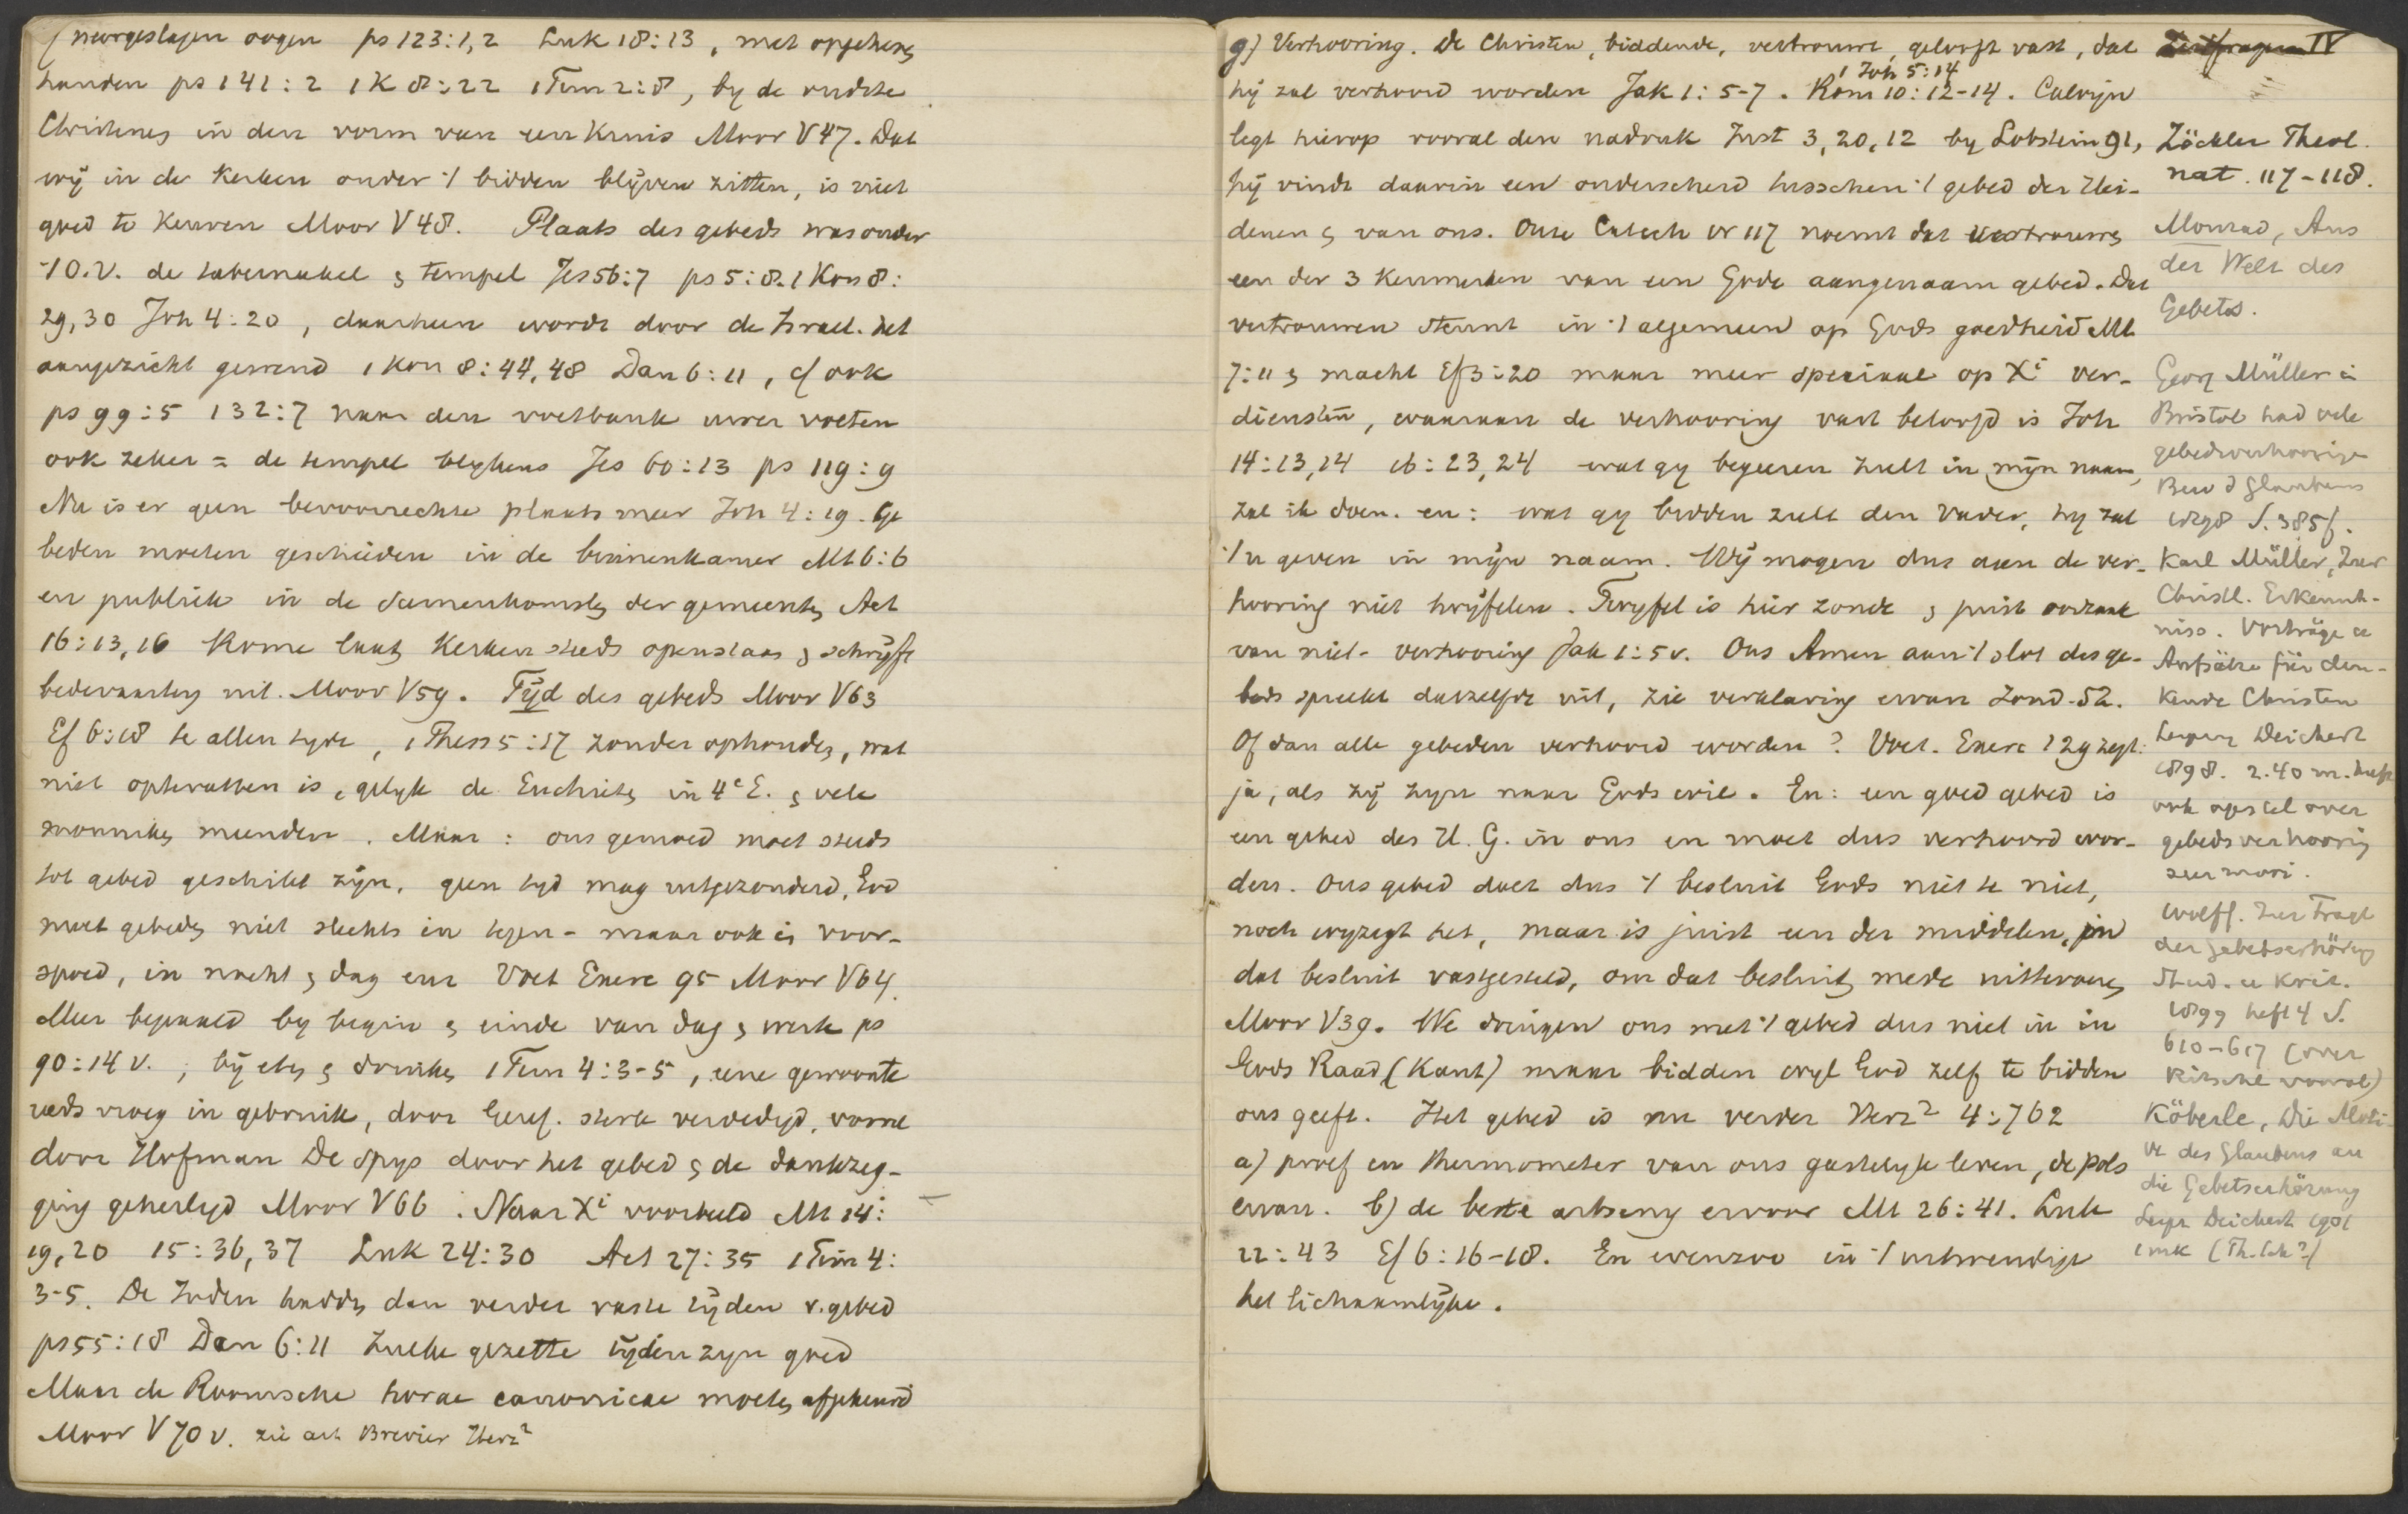 neergeslagen oogen ps 123:1,2 Luk 18:13, met opgeheven
handen ps 141:2 1 K 8:22 1 Tim 2:8, by de oudste
Christenen in den vorm van een kruis Moor V 47. Dat
wij in de kerken onder 't bidden blijven zitten, is niet
goed te keuren Moor V 48. Plaats des gebeds was onder
't O.V. de tabernakel & tempel Jes 56:7 ps 5:8. 1 Kon 8:
29,30 Joh 4:20, daarheen wordt door de Israel. het
aangezicht gewend 1 Kon 8:44,48 Dan 6:11, cf ook
ps 99:5 132:7 naar den voetbank uwer voeten
ook zeker = de tempel blykens Jes 60:13 ps 119:9
Nu is er geen bevoorrechte plaats meer Joh 4:19. Ge
beden moeten geschieden in de binnenkamer Mt 6:6
en publiek in de samenkomsten der gemeenten Act
16:13,16 Rome laat kerken steeds openstaan & schrijft
bedevaarten uit. Moor V 59. Tijd des gebeds Moor V 63
Ef 6:18 te allen tyde, 1 Thess 5:17 zonder ophouden, wat
niet optevatten is, gelyk de Euchiten in 4e E. & vele
monniken meenden. Maar: ons gemoed moet steds
tot gebed geschikt zijn, geen tyd mag uitgezonderd, God
moet gebeden niet slechts in tegen- maar ook in voor-
spoed, in nacht & dag enz Voet Exerc 95 Moor V 64.
Meer bepaald by begin & einde van dag & werk ps
90:14 v.; bij eten & drinken 1 Tim 4:3-5, eene gewoonte
reeds vroeg in gebruik, door Geref. sterk verdedigd, vooral
door Hofman De spys door het gebed & de dankzeg-
ging geheiligd Moor V 66. Naar Xi voorbeeld Mt 14:
19,20 15:36,37 Luk 24:30 Act 27:35 1 Tim 4:
3-5. De Joden hadden dan verder vaste tijden v. gebed
ps 55:18 Dan 6:11 Zulke gezette tijden zyn goed
Maar de Roomsche horae canonicae moeten afgekeurd
Moor V 70 v. zie art Brevier Herz2
g) Verhooring. De Christen, biddende, vertrouwt, gelooft vast, dat
1 Joh 5:14
hij zal verhoord worden Jak 1:5-7. Rom 10:12-14. Calvijn
legt hierop vooral den nadruk Inst 3,20,12 by Lobstein 91,
hij vindt daarin een onderscheid tusschen 't gebed der Hei-
denen & van ons. Onze Catech vr 117 noemt dat vertrouwen
een der 3 kenmerken van een Gode aangenaam gebed. Dat
vertrouwen steunt in 't algemeen op Gods goedheid Mt
7:11 & macht Ef 3:20 maar meer speciaal op Xi ver-
diensten, waaraan de verhooring vast beloofd is Joh
14:13,14 16:23,24 wat gy begeeren zult in mijn naam,
zal ik doen. en: wat gy bidden zult den Vader, hy zal
't u geven in mijn naam. Wij mogen dus aan de ver-
hooring niet twijfelen. Twyfel is hier zonde & juist oorzaak
van niet-verhooring Jak 1:5 v. Ons Amen aan 't slot des ge-
beds spreekt datzelfde uit, zie verklaring ervan Zond. 52.
Of dan alle gebeden verhoord worden? Voet. Exerc 129 zegt:
ja, als zij zyn naar Gods wil. En: een goed gebed is
een gebed des H. G. in ons en moet dus verhoord wor-
den. Ons gebed doet dus 't besluit Gods niet te niet,
noch wyzigt het, maar is juist een der middelen, in
dat besluit vastgesteld, om dat besluit mede uittevoeren
Moor V 39. We dringen ons met 't gebed dus niet in in
Gods Raad (Kant) maar bidden wyl God zelf te bidden
ons geeft. Het gebed is nu verder Herz2 4:762
a) proef en thermometer van ons geestelyk leven, de pols
ervan. b) de beste artseny ervoor Mt 26:41. Luk
22:43 Ef 6:16-18. En evenzoo in 't uitwendige
het lichaamlijke.
Zeitfragen IV
Zöckler Theol.
nat. 117-118.
Monrad, Aus
der Welt des
Gebetes.
Georg Müller in
Bristol had vele
gebedsverhooringen
Bew d Glaubens
1898 S. 385f.
Karl Müller, Zur
Christl. Erkennt-
niss. Vorträge u
Aufsätze für den-
kende Christen
Leipzig Deichert
1898. 2.40 m. heeft
ook opstel over
gebedsverhooring
zeer mooi.
Wolff. Zur Frage
der Gebetserhörung
Stud. u Krit.
1899 heft 4 S.
610-617 (over
Ritschl vooral)
Köberle, Die Moti-
ve des Glaubens an
die Gebetserhörung
Leipz Deichert 1901
1 mk